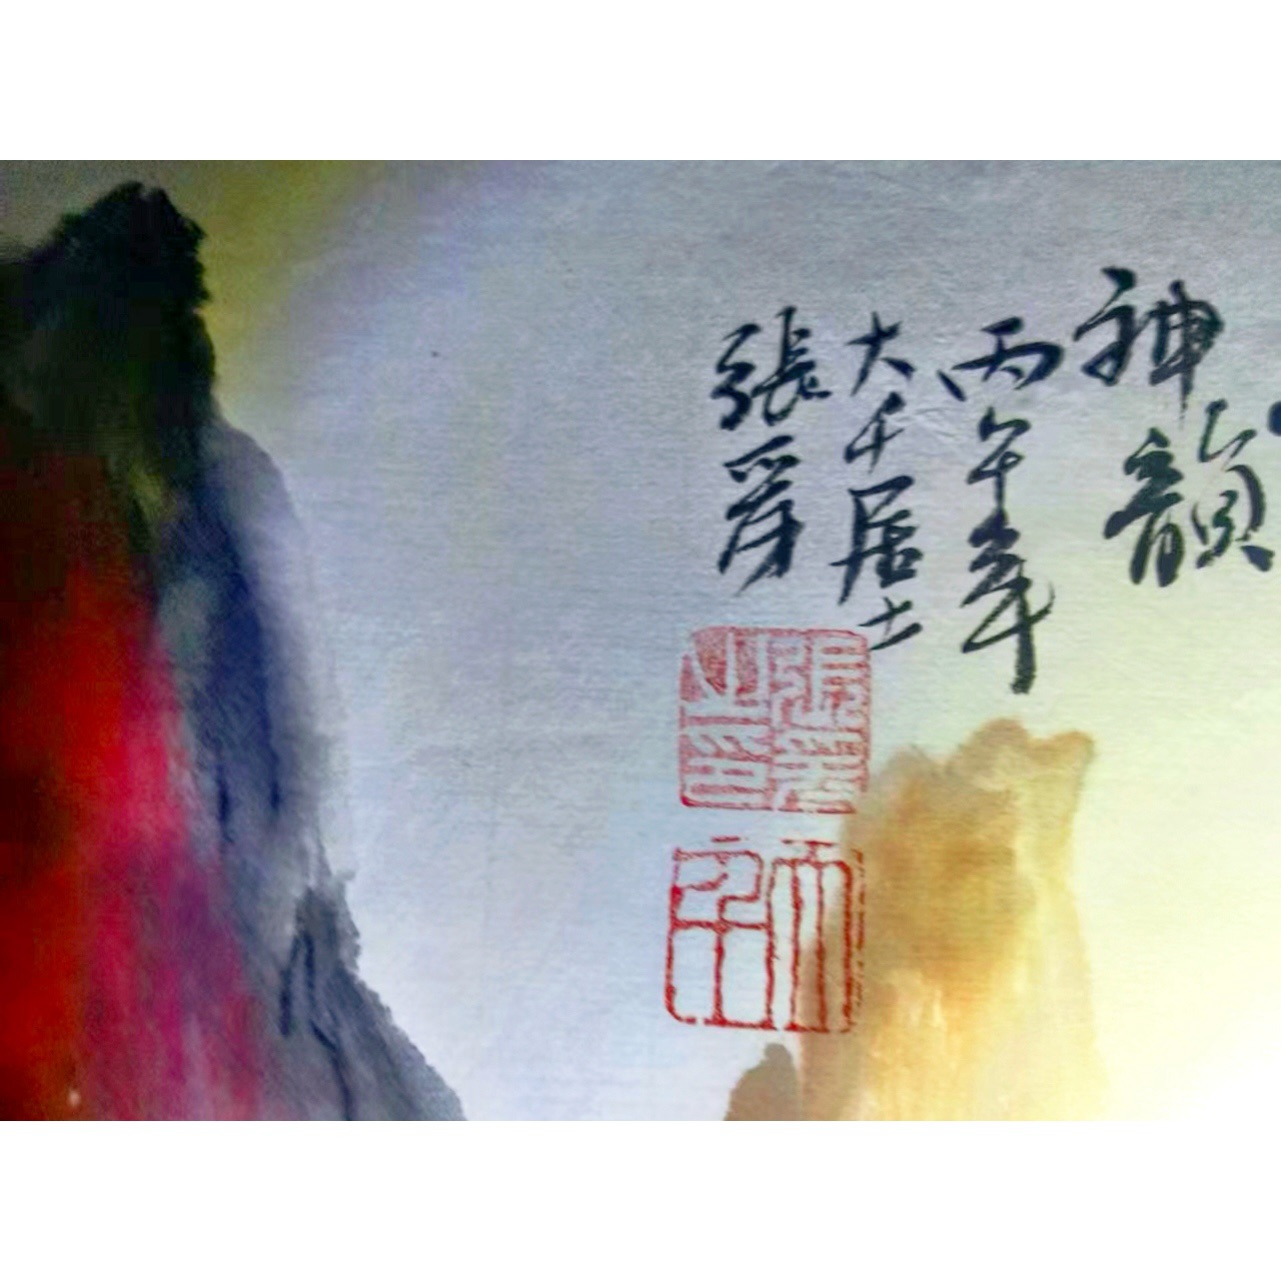 神韻
丙午年
大千居士
張爰
張爰之印
大千